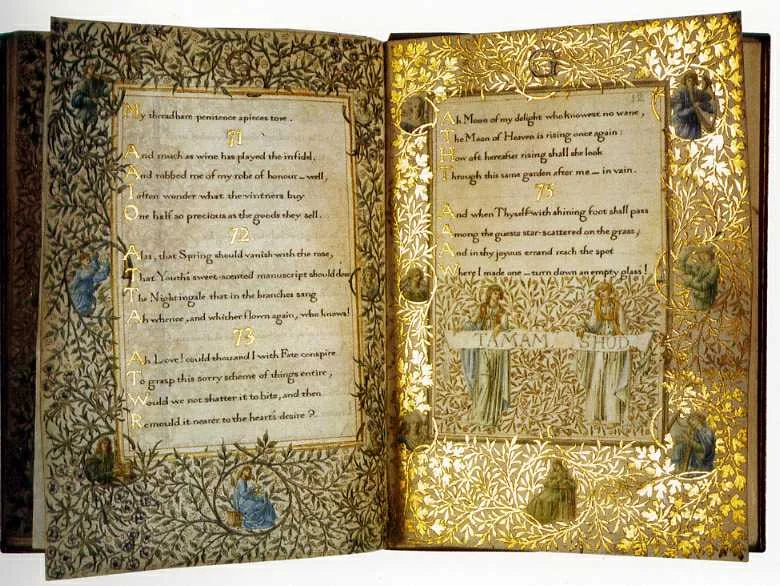 My threadbare penitence apieces tore.
71
And much as wine has played the infidel,
And robbed me of my robe of honour — well,
I often wonder what the vintners buy
One half so precious as the goods they sell.
72
Alas, that Spring should vanish with the rose,
That Youth's sweet-scented manuscript should close
The Nightingale that in the branches sang
Ah whence, and whither flown again, who knows!
73
Ah Love! could thou and I with Fate conspire
To grasp this sorry scheme of things entire,
Would we not shatter it to bits, and then
Remould it nearer to the heart's desire?
Ah Moon of my delight who knowest no wane,
The Moon of Heaven is rising once again:
How oft hereafter rising shall she look
Through this same garden after me — in vain.
75
And when Thyself with shining foot shall pass
Among the guests star-scattered on the grass,
And in thy joyous errand reach the spot
Where I made one — turn down an empty glass!
TAMAM SHUD